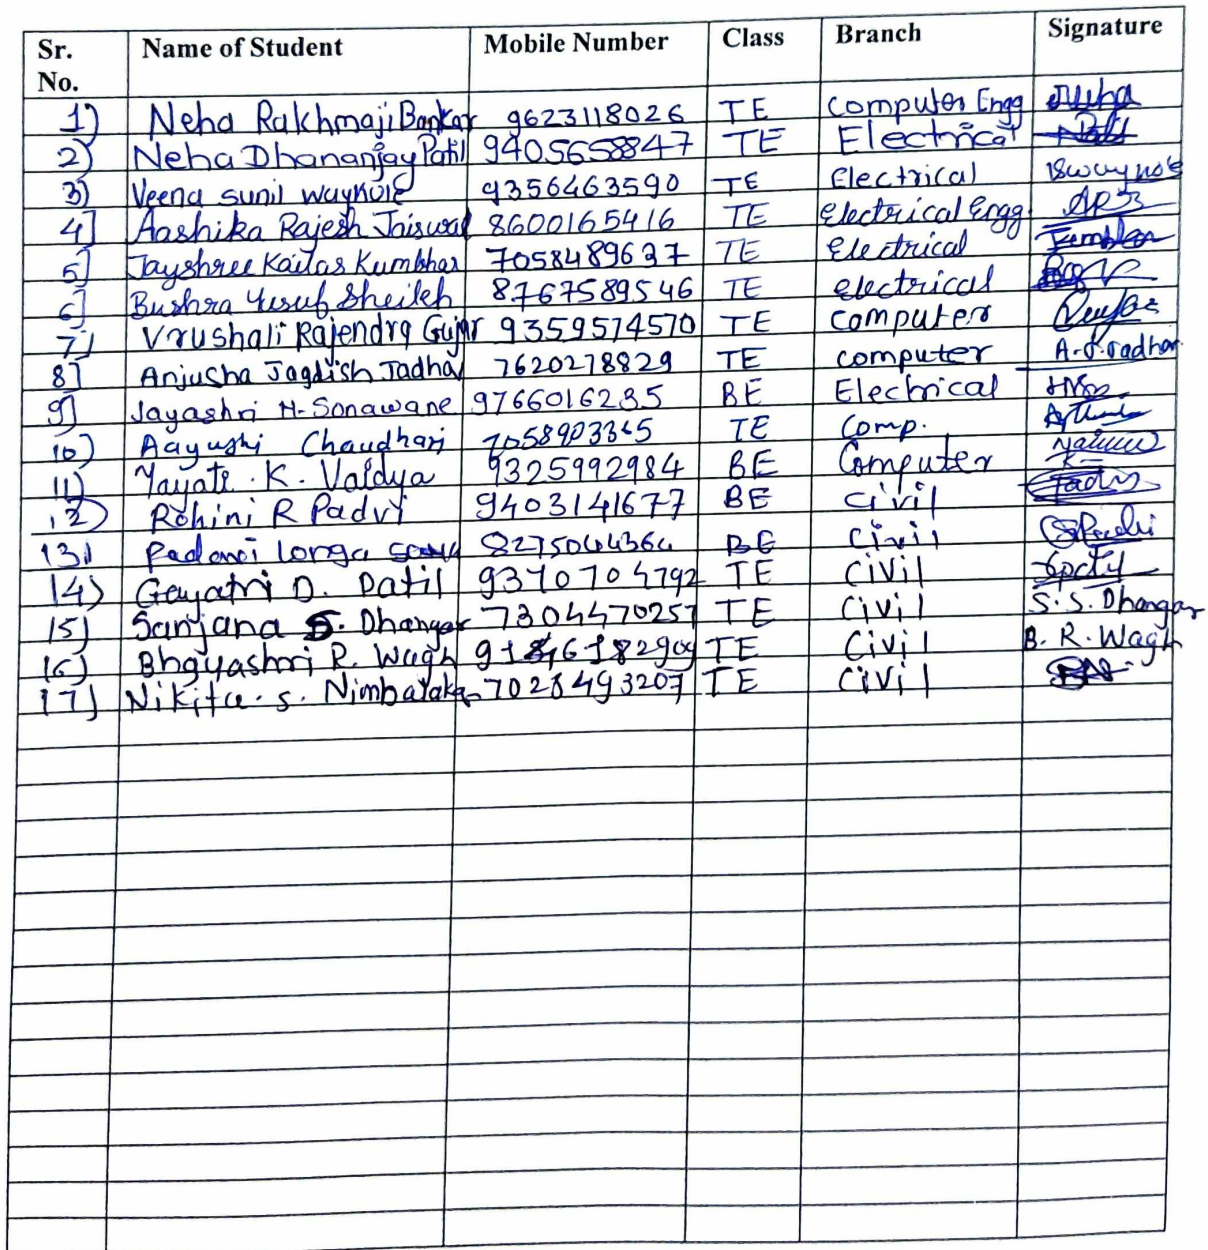 Sr. No. Name of Student Mobile Number Class Branch Signature
1) Neha Rakhmaji Bankar 9623118026 TE Computer Engg
2) Neha Dhananjay Patil 9405658847 TE Electrical
3) Veena sunil waykole 9356463590 TE Electrical
4] Aashika Rajesh Jaiswal 8600165416 TE Electrical Engg
5] Jayshree Kailas Kumbhar 7058489637 TE Electrical
6] Bushra Yusuf Sheikh 8767589546 TE electrical
7) Vrushali Rajendra Gujar 9359574570 TE Computer
8] Anjusha Jagdish Jadhav 7620278829 TE computer
9] Jayashri H. Sonawane 9766016235 BE Electrical
10) Aayushi Chaudhari 7058903365 TE Comp.
11) Yayati . K. Vaidya 9325992984 BE Computer
12) Rohini R Padvi 9403141677 BE Civil
13) 8275044364 BE Civil
14) Gayatri D. Patil 9370704792 TE Civil
15) Sanjana S. Dhangar 7304470257 TE Civil S.S. Dhangar
16) Bhgyashri R. Wagh TE Civil B. R. Wagh
17) Nikita . s. Nimbalakar 7028493207 TE Civil